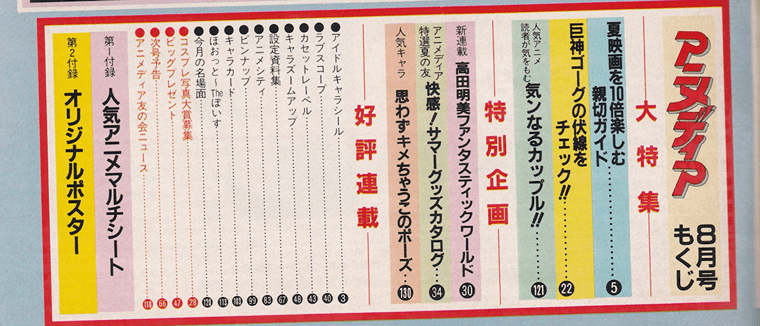 アニメディア
8月号
もくじ
大特集
夏映画を10倍楽しむ
親切ガイド………5
巨神ゴーグの伏線を
チェック!!………22
人気アニメ
読者が気をもむ
気ンなるカップル!!………121
特別企画
新連載
高田明美ファンタスティックワールド
30
アニメディア
特選夏の友
快感!サマーグッズカタログ…34
人気キャラ
思わずキメちゃうこのポーズ…130
好評連載
●アイドルキャラシール………3
●ラブスコープ………40
●カセットレーベル………43
●キャラズームアップ………48
●設定資料集………67
●アニメシティ………83
●ピンナップ………99
●キャラカード………101
●ほおっと〜Theぼいす………113
●今月の名場面………128
●コスプレ写真大賞募集………28
●ビッグプレゼント………47
●次号予告………66
●アニメディア友の会ニュース………118
第1付録
人気アニメマルチシート
第2付録
オリジナルポスター